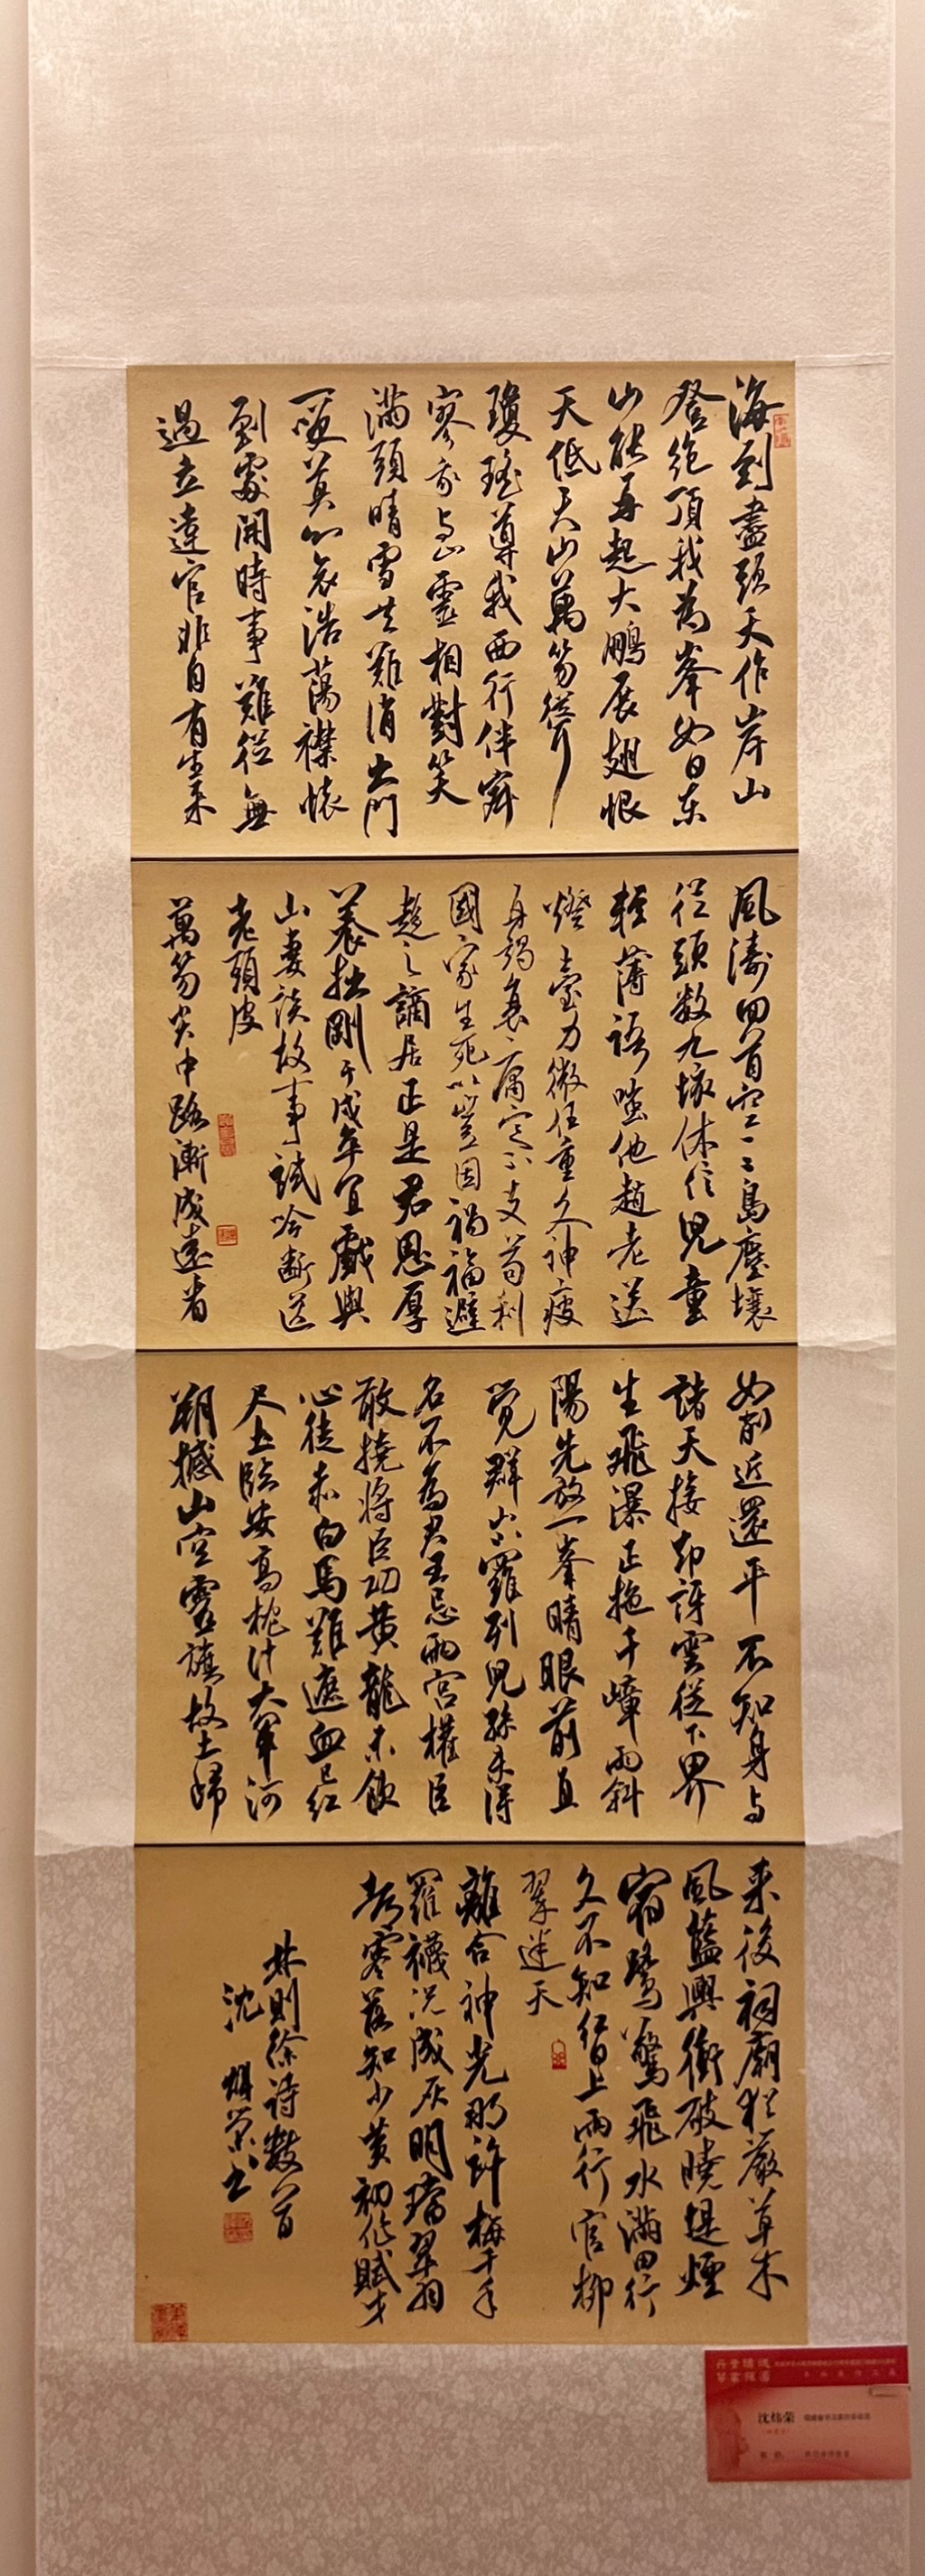 海到盡頭天作岸山
登絶頂我為峯如日東
山能再起大鵬展翅恨
天低天山萬笏聳
瓊瑤導我西行伴寂
寥我與山靈相對笑
滿頭晴雪共難消出門
一笑莫心哀浩蕩襟懷
到處開時事難從無
過立達官非自有生來
風濤回首空三島塵壤
從頭數九垓休信兒童
輕薄語嗤他趙老送
燈臺力微任重久神疲
再竭衰庸定不支苟利
國家生死以豈因禍福避
趨之謫居正是君恩厚
養拙剛于戍卒宜戲與
山妻談故事試吟斷送
老頭皮
萬笏尖中路漸成遠看
如削近還平不知身與
諸天接却訝雲從下界
生飛瀑正拖千嶂雨斜
陽先放一峯晴眼前直
覺群山羅列兒孫未得
名不為君王忌兩宮權臣
敢撓將臣功黄龍未飲
心徒赤白馬難遮血已紅
尺土臨安高枕計大軍河
朔撼山空靈旗故土歸
來後祠廟猶嚴草木
風藍輿衝破曉堤煙
宿鷺驚飛水滿田行
久不知紅日上兩行官柳
翠迷天
離合神光那許梅千年
羅襪況成灰明璫翠羽
落知少黄初作賦才
林則徐詩數首
沈煒榮書
沈炜荣